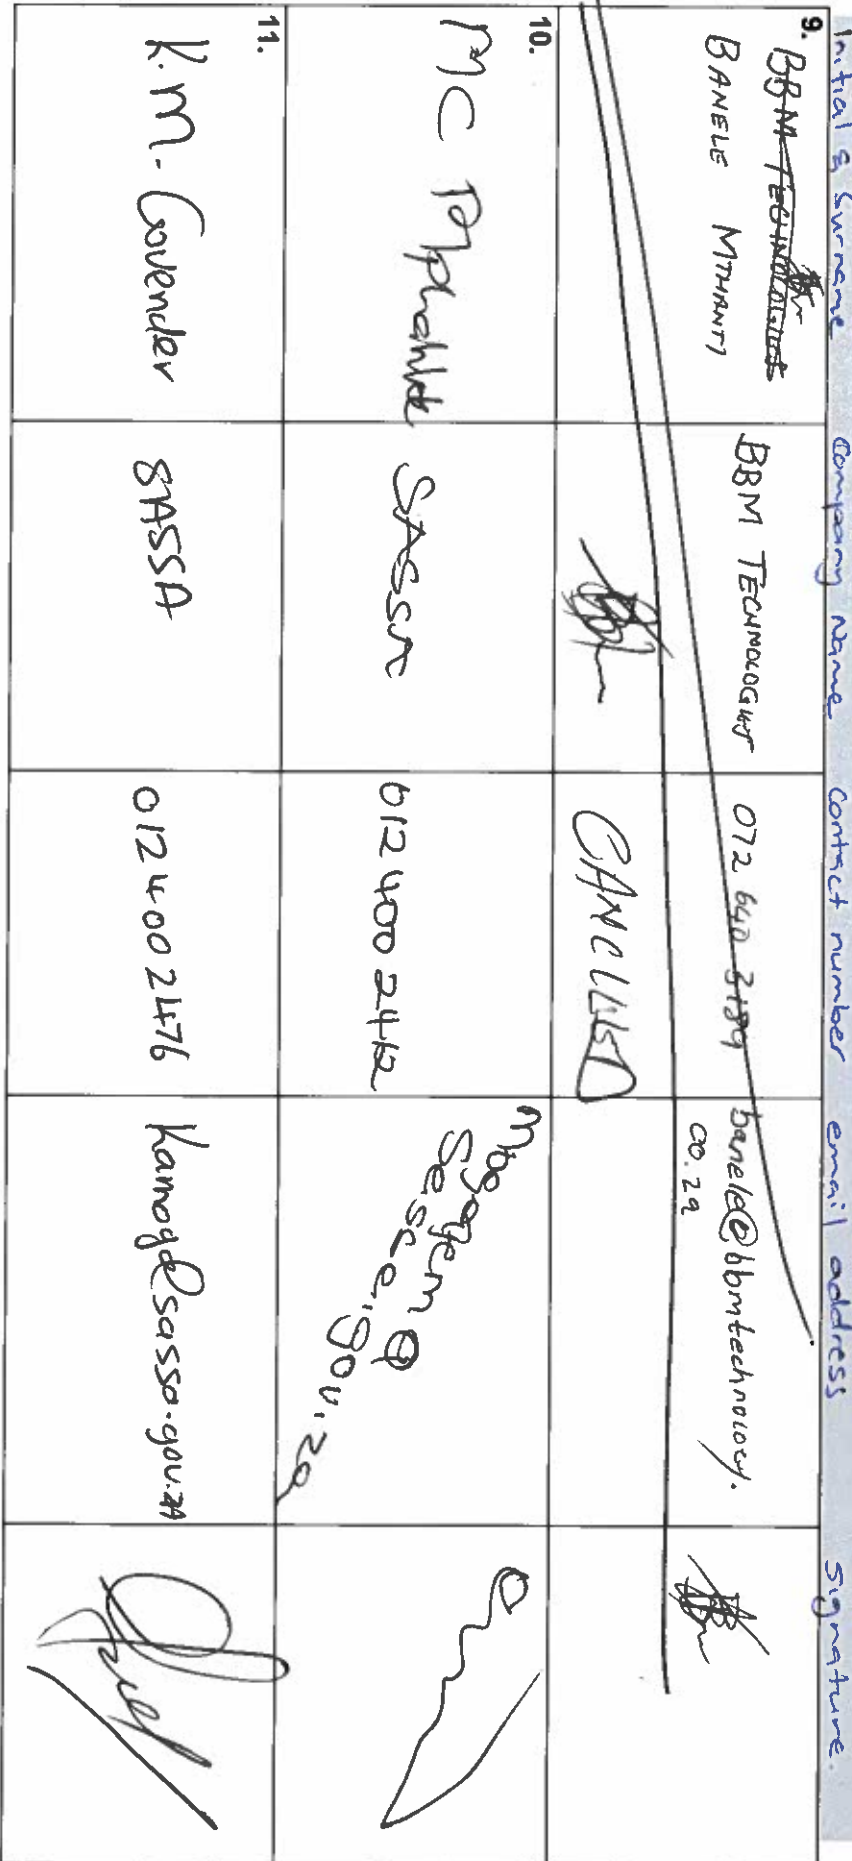 Initial & Surname company name contact number email address signature.
9. BBM TECHNOLOGIES
BANELE MTHANTI BBM TECHNOLOGIES 072 640 3189 banele@bbmtechnology.
co.za
CANCELLED
10.
MC SASSA 012 400 2412
sassa.gov.za
11.
K.M. Govender SASSA 012 400 2476 Kamog@sassa.gov.ZA